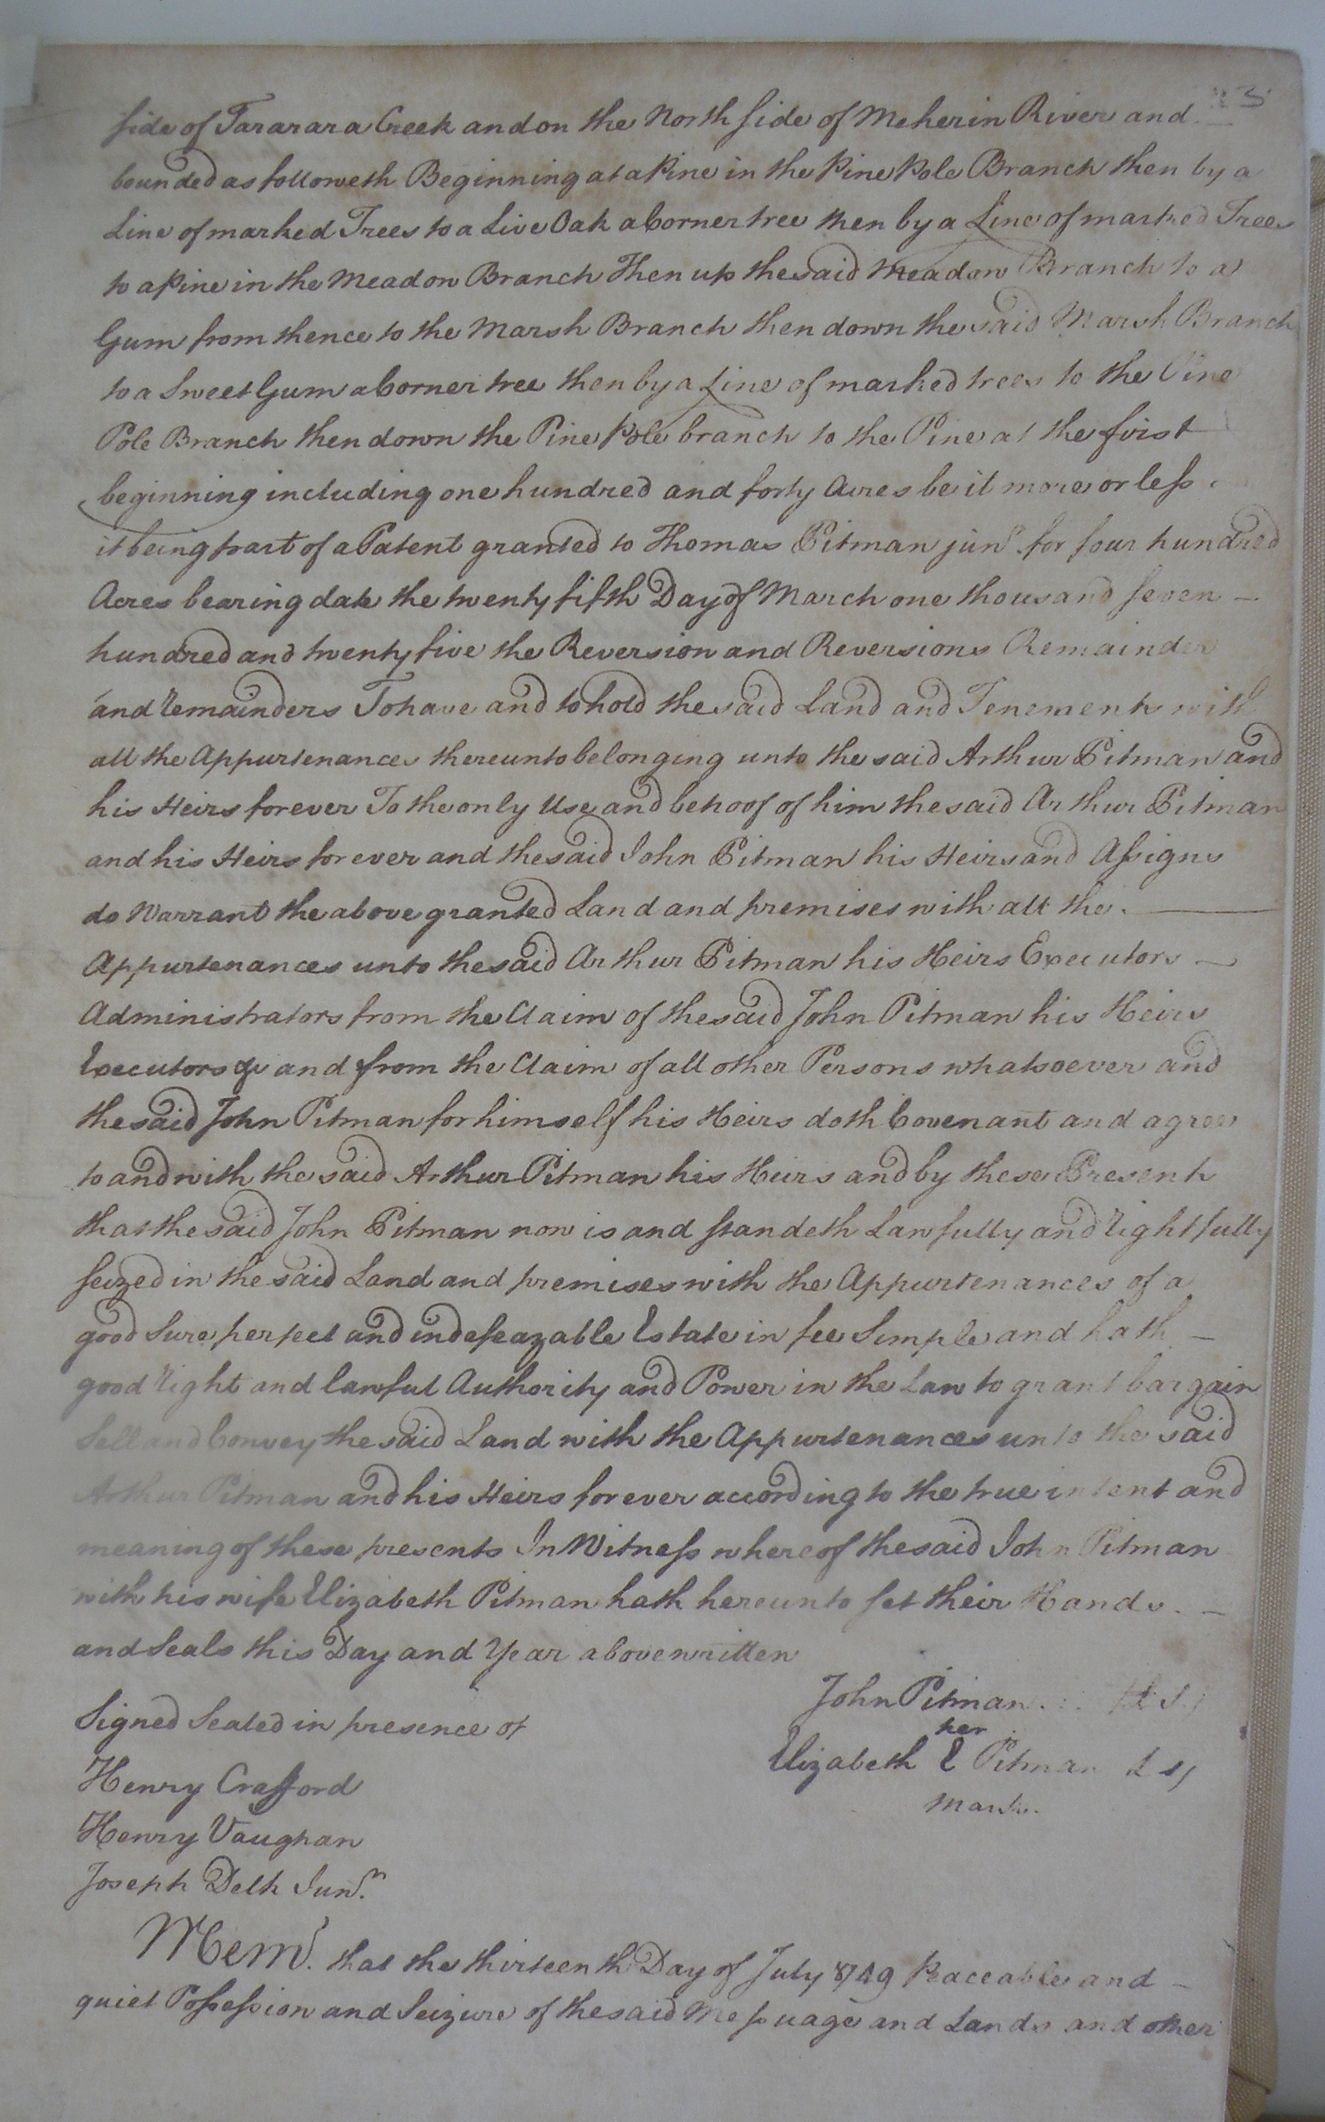 3
side of Tararara Creek and on the North side of Meherin River and
bounded as followeth Beginning at a Pine in the Pine Pole Branch then by a
Line of marked Trees to a Live Oak a Corner tree then by a Line of marked Trees
to a Pine in the Meadow Branch Then up the said Meadow Branch to a
Gum from thence to the Marsh Branch then down the said Marsh Branch
to a Sweet Gum a Corner tree then by a Line of marked trees to the Pine
Pole Branch then down the Pine Pole branch to the Pine at the first
beginning including one hundred and forty Acres be it more or less
it being part of a Patent granted to Thomas Pitman junr. for four hundred
Acres bearing date the twenty fifth Day of March one thousand seven
hundred and twenty five the Reversion and Reversions Remainder
and Remainders To have and to hold the said Land and Tenements with
all the Appurtenances thereunto belonging unto the said Arthur Pitman and
his Heirs forever To the only Use and behoof of him the said Arthur Pitman
and his Heirs for ever and the said John Pitman his Heirs and Assigns
do Warrant the above granted Land and premises with all the
Appurtenances unto the said Arthur Pitman his Heirs Executors
Administrators from the Claim of the said John Pitman his Heirs
Executors &c and from the Claim of all other Persons whatsoever and
the said John Pitman for himself his Heirs doth Covenant and agree
to and with the said Arthur Pitman his Heirs and by these Presents
that the said John Pitman now is and standeth Lawfully and rightfully
seized in the said Land and premises with the Appurtenances of a
good Sure perfect and indefeazable Estate in fee Simple and hath
good right and lawful Authority and Power in the Law to grant bargain
Sell and Convey the said Land with the Appurtenances unto the said
Arthur Pitman and his Heirs for ever according to the true intent and
meaning of these presents In Witness whereof the said John Pitman
with his wife Elizabeth Pitman hath hereunto set their Hands
and Seals this Day and Year above written
John Pitman L S
Signed Sealed in presence of
her
Elizabeth E Pitman L S
Mark
Henry Crafford
Henry Vaughan
Joseph Delk Junr.
Memd. that the thirteenth Day of July 1749 Peaceable and
quiet Possession and Seizure of the said Messuage and Lands and other